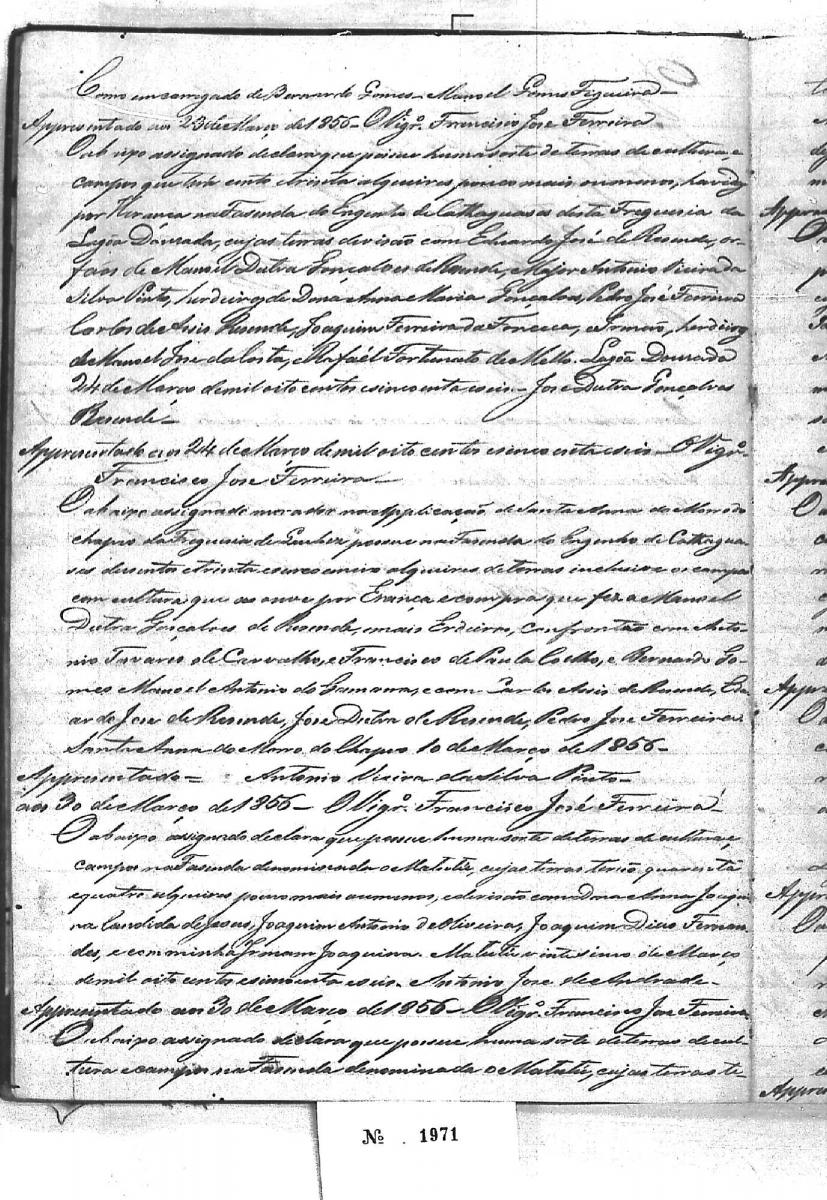 Como emcarregado de Bernardo Gomes - Manoel Gomes Figueira -
Appresentado aos 23 de Março de 1856 - O Vigrº. Francisco José Ferreira
O abaixo assignado declara que possue huma sorte de terras de cultura, e
campos que cento e trinta alqueires pouco mais ou menos, havidos
por Herança na Fasenda do Engenho de Cathaguasas desta Freguesia da
Lagôa Dourada, cujas terras devisão com Eduardo José de Resende, or-
faos de Manoel Dutra Gonçalves de Resende, e Major Antonio Vieira da
Silva Pinto, herdeiros de Dona Anna Maria Gonçalves, Pedro José Ferreira
Carlos de Assis Resende, Joaquim Ferreira da Fonceca, e Irmão, herdeiros
de Manoel José da Costa, e Rafaél Fortunato de Mello. Lagôa Dourada
24 de Março de mil oito centos e sincoenta e seis - José Dutra Gonçalves
Resende -
Appresentado aos 24 de Março de mil oito centos e sincoenta e seis - O Vigrº.
Francisco José Ferreira -
O abaixo assignado morador na Applicação de Santa Anna do Morro do
chapeo da Freguesia de possue na Fasenda do Engenho de Cathagua-
sas dusentos e trinta e alqueires de terras inclusive os campos
com cultura que as ouve por Erança e compra que fez a Manoel
Dutra Gonçalves de Resende, e mais Erdeiros, confrontão com Anto-
nio Tavares de Carvalho, e Francisco de Paula Coelho, e Bernardo Go-
mes Manoel Antonio do e com Carlos Assis de Resende, Edu-
ardo Jose de Resende, José Dutra de Resende, Pedro Jose Ferreira.
Santa Anna do Morro do Chapeo 10 de Março de 1856 -
Appresentado = Antonio Vieira da Silva Pinto -
aos 30 de Março de 1856 - O Vigrº. Francisco José Ferreira -
O abaixo assignado declara que possue huma sorte de terras de cultura, e
campos na Fasenda denominada o Matutú, cujas terras terão quarenta
e quatro alqueires pouco mais ou menos, e devisão com Dna Anna Joaqui-
na Candida de Jesus, Joaquim Antonio de Oliveira, Joaquim Dias Fernan-
des, e com minha Irmam Joaquina. Matutú vinte sinco de Março
de mil oito centos e sincoenta e seis. Antonio Jose de Andrade -
Appresentado aos 30 de Março de 1856 - O Vigrº. Francisco Jose Ferreira
O abaixo assignado declara que possue huma sorte de terras de cul-
tura e campos na Fasenda denominada o Matutú, cujas terras te-
Nº 1971